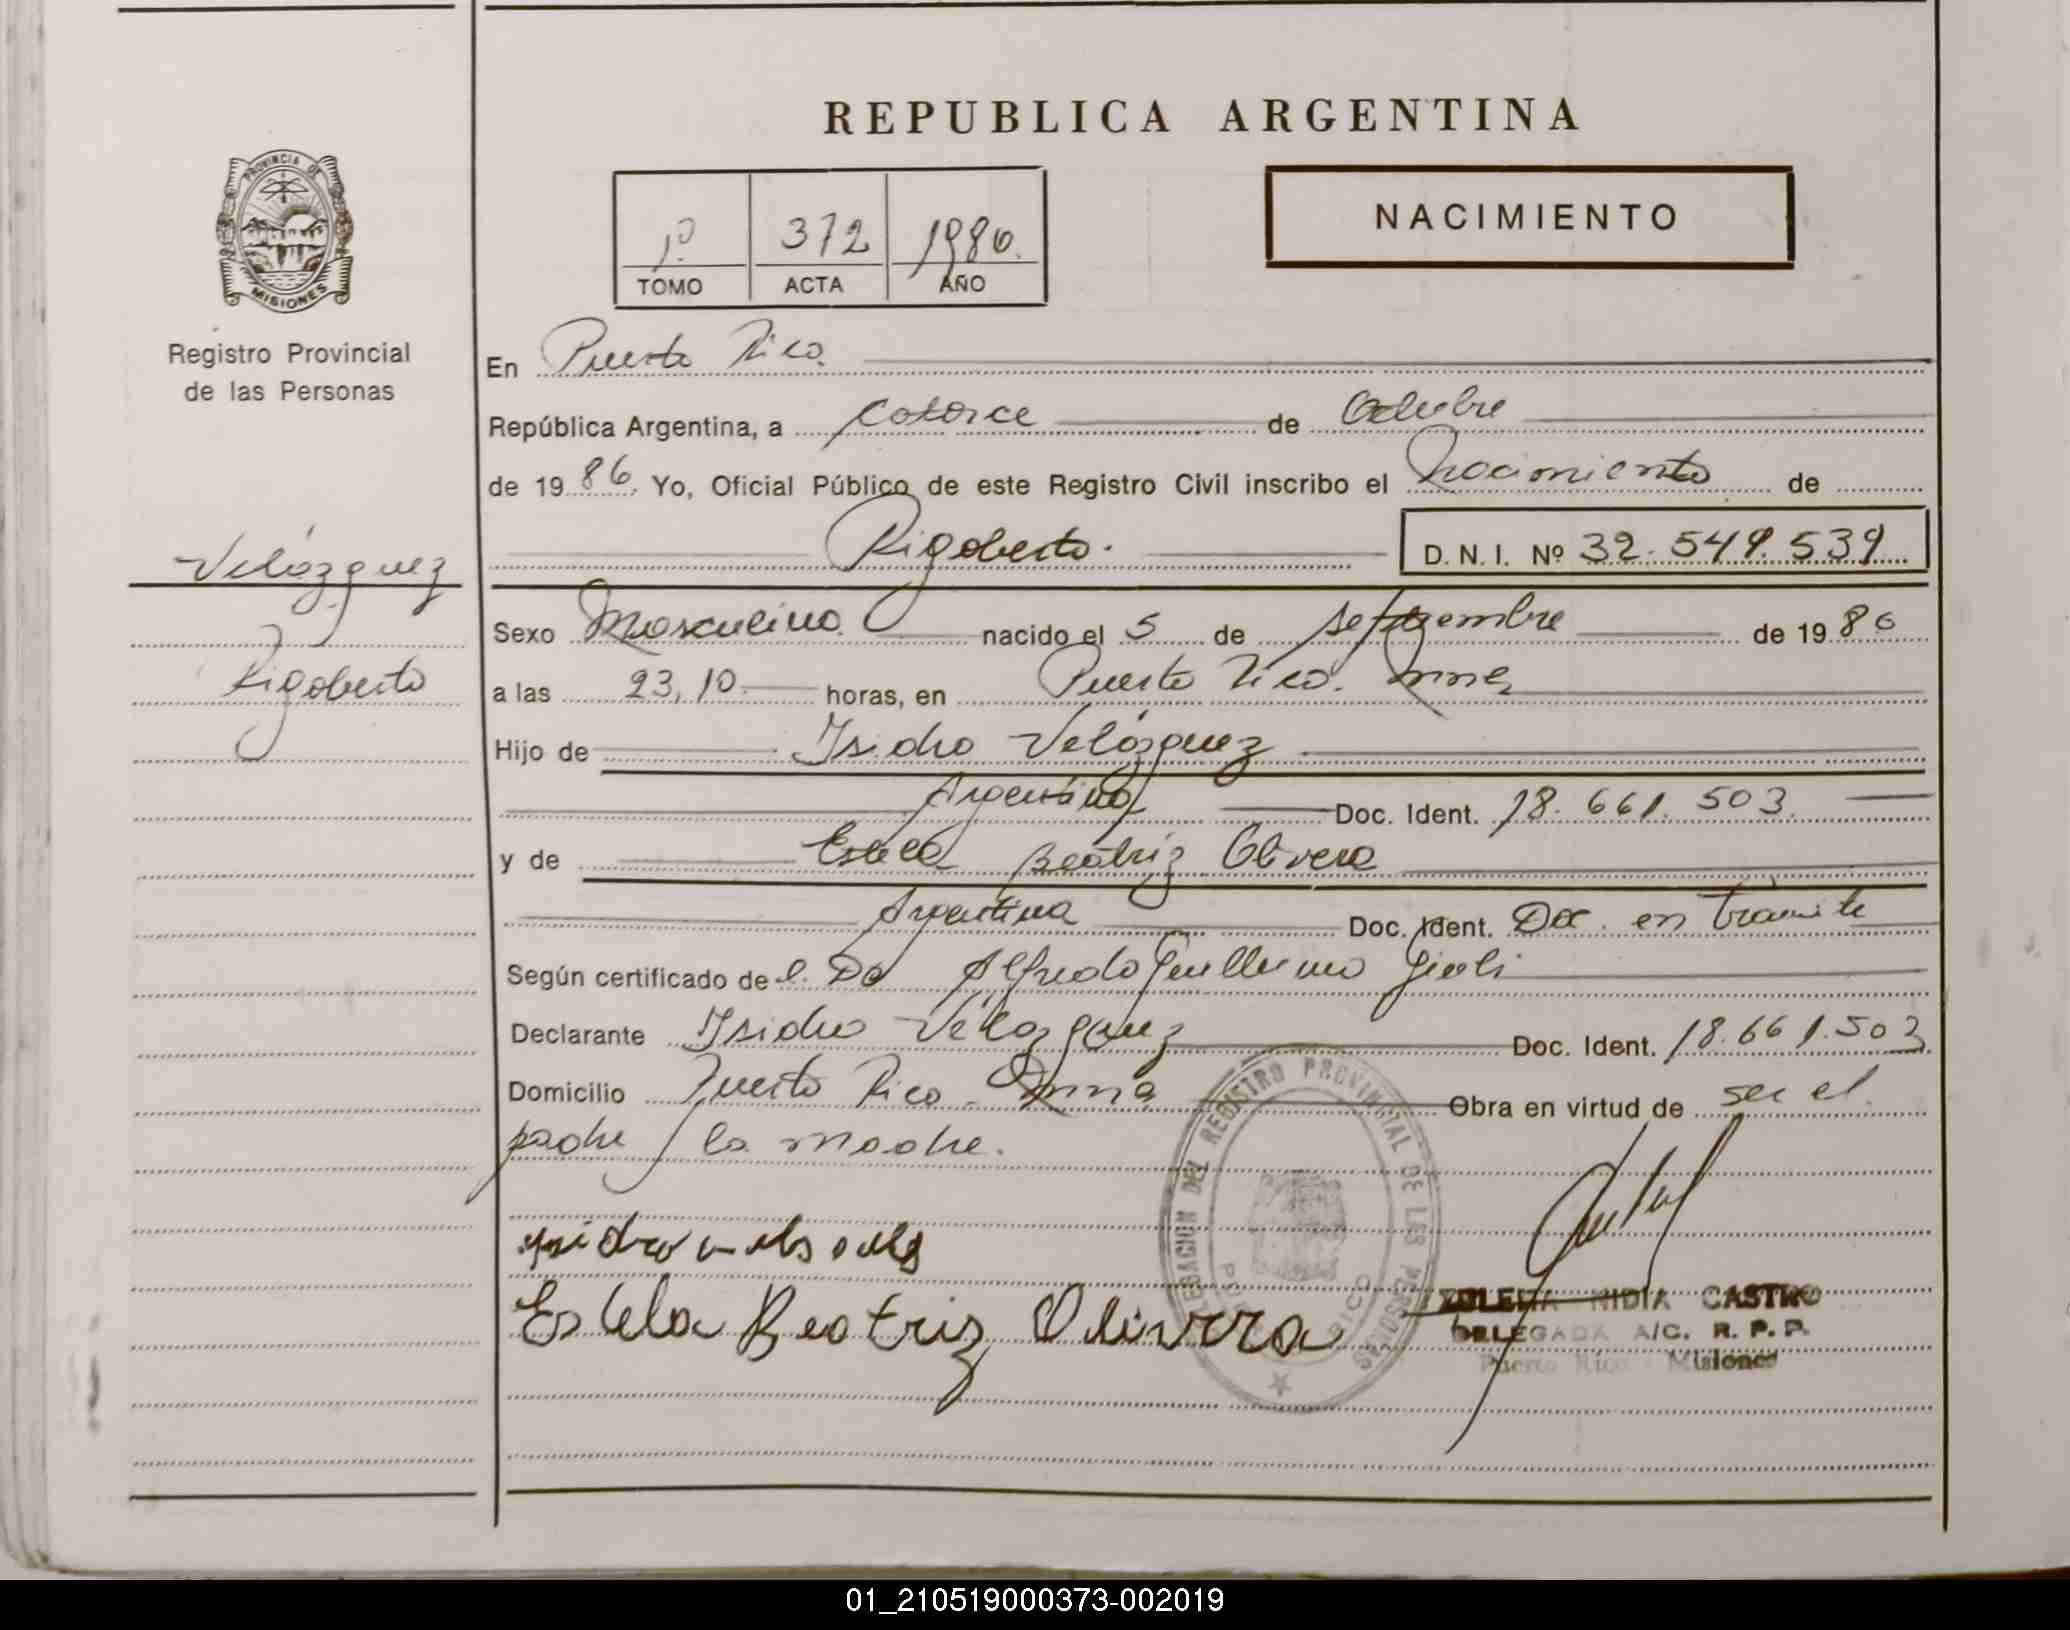 REPUBLICA ARGENTINA
PROVINCIA DE
MISIONES
Registro Provincial
de las Personas
1º 372 1986.
TOMO ACTA AÑO
NACIMIENTO
En Puerto Rico.
República Argentina, a catorce de Octubre
de 1986. Yo, Oficial Público de este Registro Civil inscribo el nacimiento de
Rigoberto. D. N. I. Nº 32.549.539
Velázquez
Rigoberto
Sexo Masculino. nacido el 5 de septiembre de 1986
a las 23,10 horas, en Puerto Rico. Mnes
Hijo de Isidro Velázquez
Argentino Doc. Ident. 18.661.503.
y de Estela Beatriz Olivera
Argentina Doc. Ident. Doc. en trámite
Según certificado de l. Dr Alfredo Guillermo
Declarante Isidro Velázquez Doc. Ident. 18.661.503
Domicilio Puerto Rico - Mnes Obra en virtud de ser el
padre y la madre.
Estela Beatriz Olivera
DELEGACION DEL REGISTRO PROVINCIAL DE LAS PERSONAS
PUERTO RICO
ZULEMA NIDIA CASTRO
DELEGADA A/C. R. P. P.
Puerto Rico Misiones
01_210519000373-002019